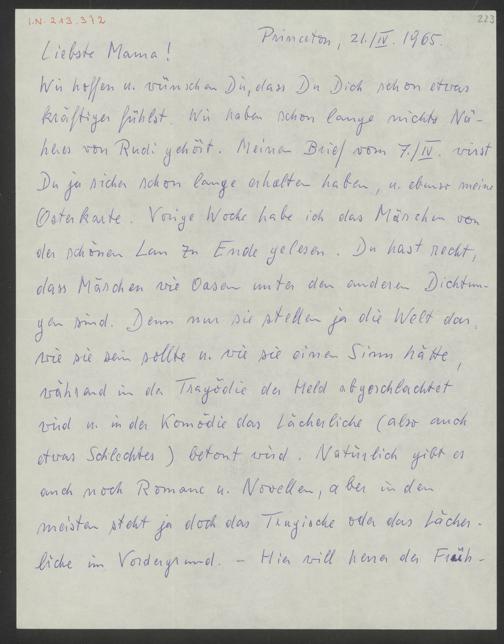 I.N. 213.392
223
Princeton, 21./IV. 1965.
Liebste Mama!
Wir hoffen u. wünschen Dir, dass Du Dich schon etwas
kräftiger fühlst. Wir haben schon lange nichts Nä-
heres von Rudi gehört. Meinen Brief vom 7./IV. wirst
Du ja sicher schon lange erhalten haben, u. ebenso meine
Osterkarte. Vorige Woche habe ich das Märchen von
der schönen Lau zu Ende gelesen. Du hast recht,
dass Märchen wie Oasen unter den anderen Dichtun-
gen sind. Denn nur sie stellen ja die Welt dar,
wie sie sein sollte u. wie sie einen Sinn hätte,
während in der Tragödie der Held abgeschlachtet
wird u. in der Komödie das Lächerliche (also auch
etwas Schlechtes) betont wird. Natürlich gibt es
auch noch Romane u. Novellen, aber in den
meisten steht ja doch das Tragische oder das Lächer-
liche im Vordergrund. – Hier will heuer der Früh-